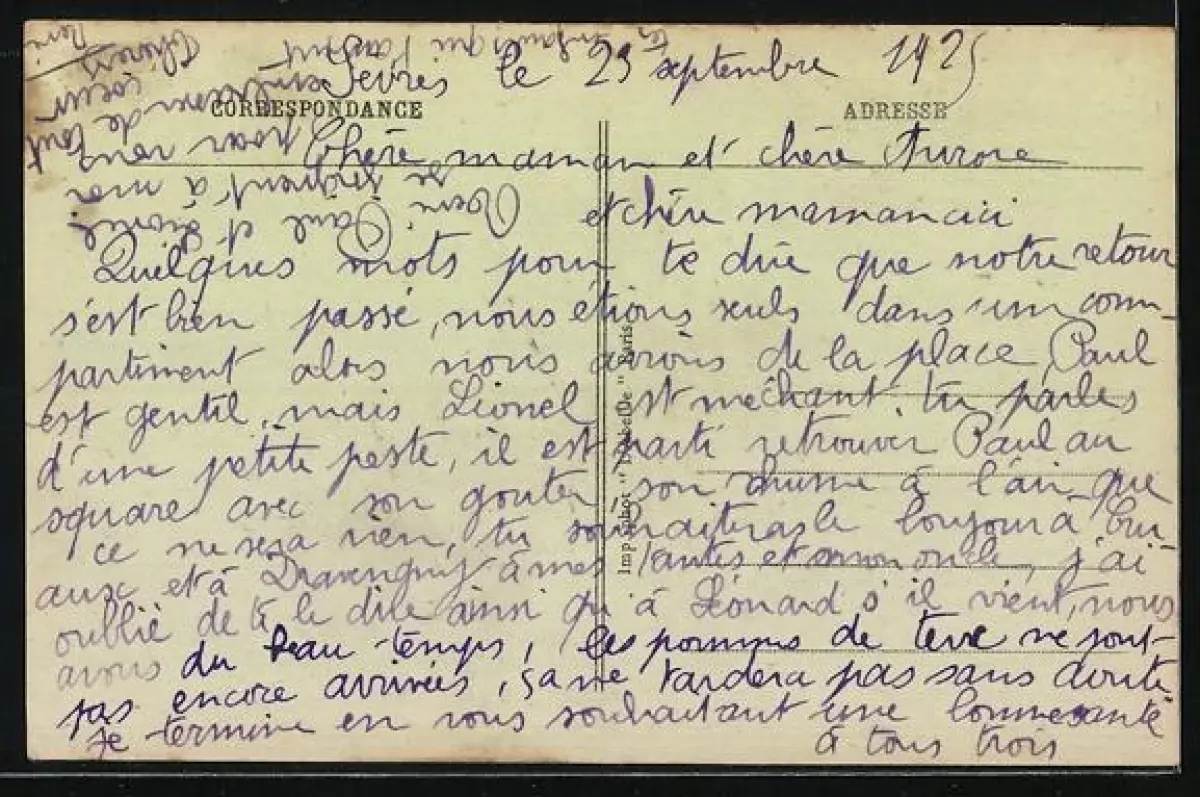 Sevres le 23 septembre 1925
CORRESPONDANCE
ADRESSE
Chère maman et chère Aurore
et chère maman cici
Quelques mots pour te dire que notre retour
s'est bien passé, nous étions seuls dans un com-
partiment alors nous avions de la place, Paul
est gentil, mais Lionel est méchant, tu parles
d'une petite peste, il est parti retrouver Paul au
square avec son gouter, son rhume à l'air que
ce ne sera rien, tu souhaiteras le bonjour à
aux et à mes tantes et à mon oncle, j'ai
oublié de te le dire ainsi qu'à Léonard s'il vient, nous
avons du beau temps, les pommes de terre ne sont
pas encore arrivées, ça ne tardera pas sans doute
je termine en vous souhaitant une bonne santé
à tous trois
les enfants qui
René Paul et Lionel
se joignent à moi
pour vous
de tout
coeur
Imp. Phot. Paris